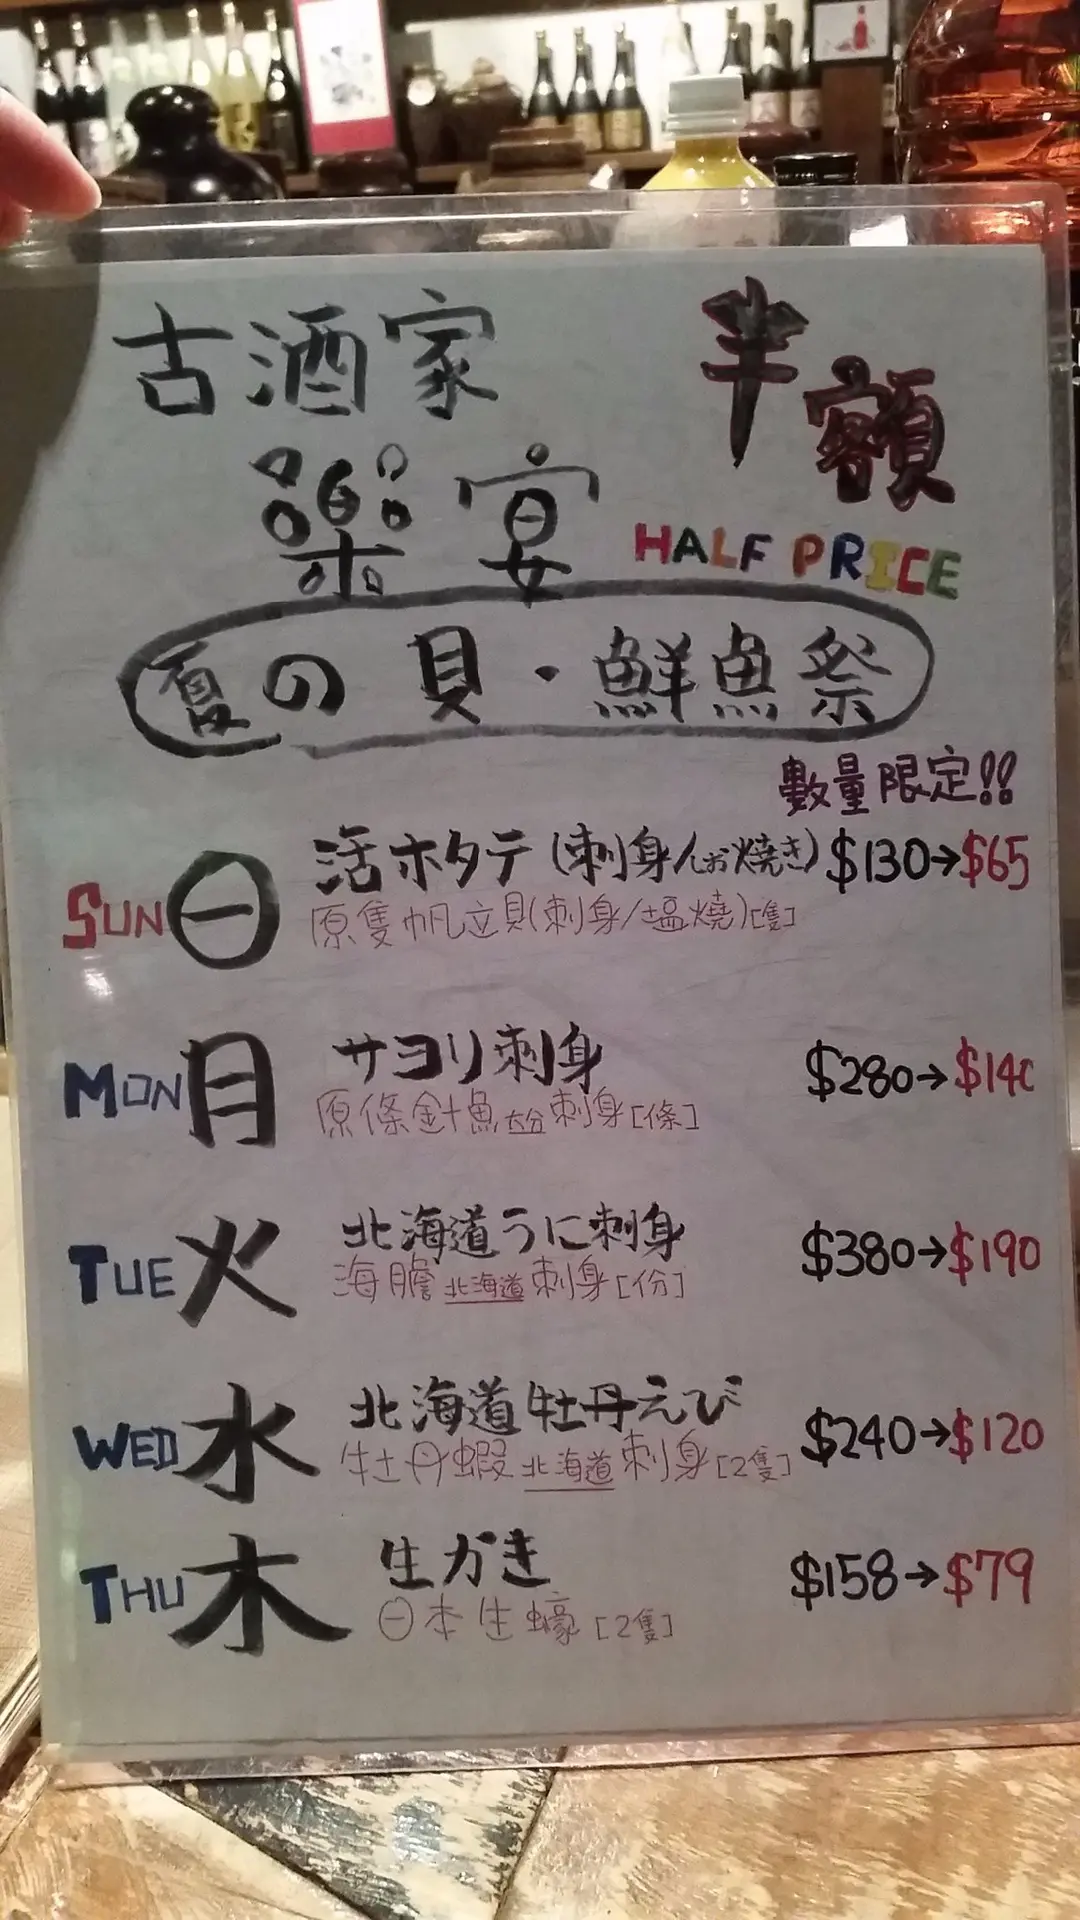 古酒家
半額
樂宴
HALF PRICE
夏の貝・鮮魚祭
數量限定!!
SUN 日 活ホタテ(刺身/しお焼き) $130→$65
原隻帆立貝(刺身/塩燒)[隻]
MON 月 サヨリ刺身 $280→$140
原條針魚大分刺身[條]
TUE 火 北海道うに刺身 $380→$190
海膽北海道刺身[份]
WED 水 北海道牡丹えび $240→$120
牡丹蝦北海道刺身[2隻]
THU 木 生がき $158→$79
日本生蠔[2隻]